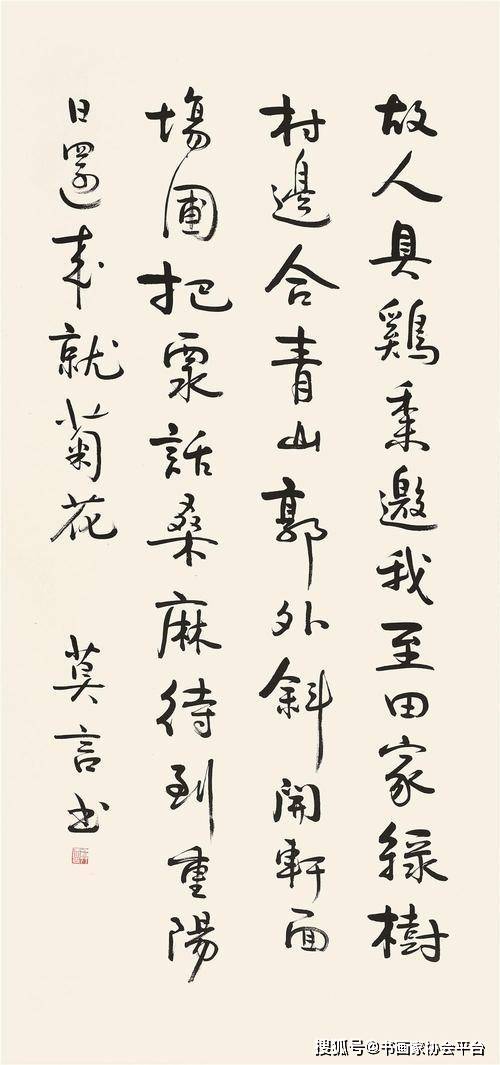 故人具鷄黍邀我至田家綠樹
村邊合青山郭外斜開軒面
場圃把話桑麻待到重陽
日還來就菊花 莫言书
搜狐号@书画家协会平台